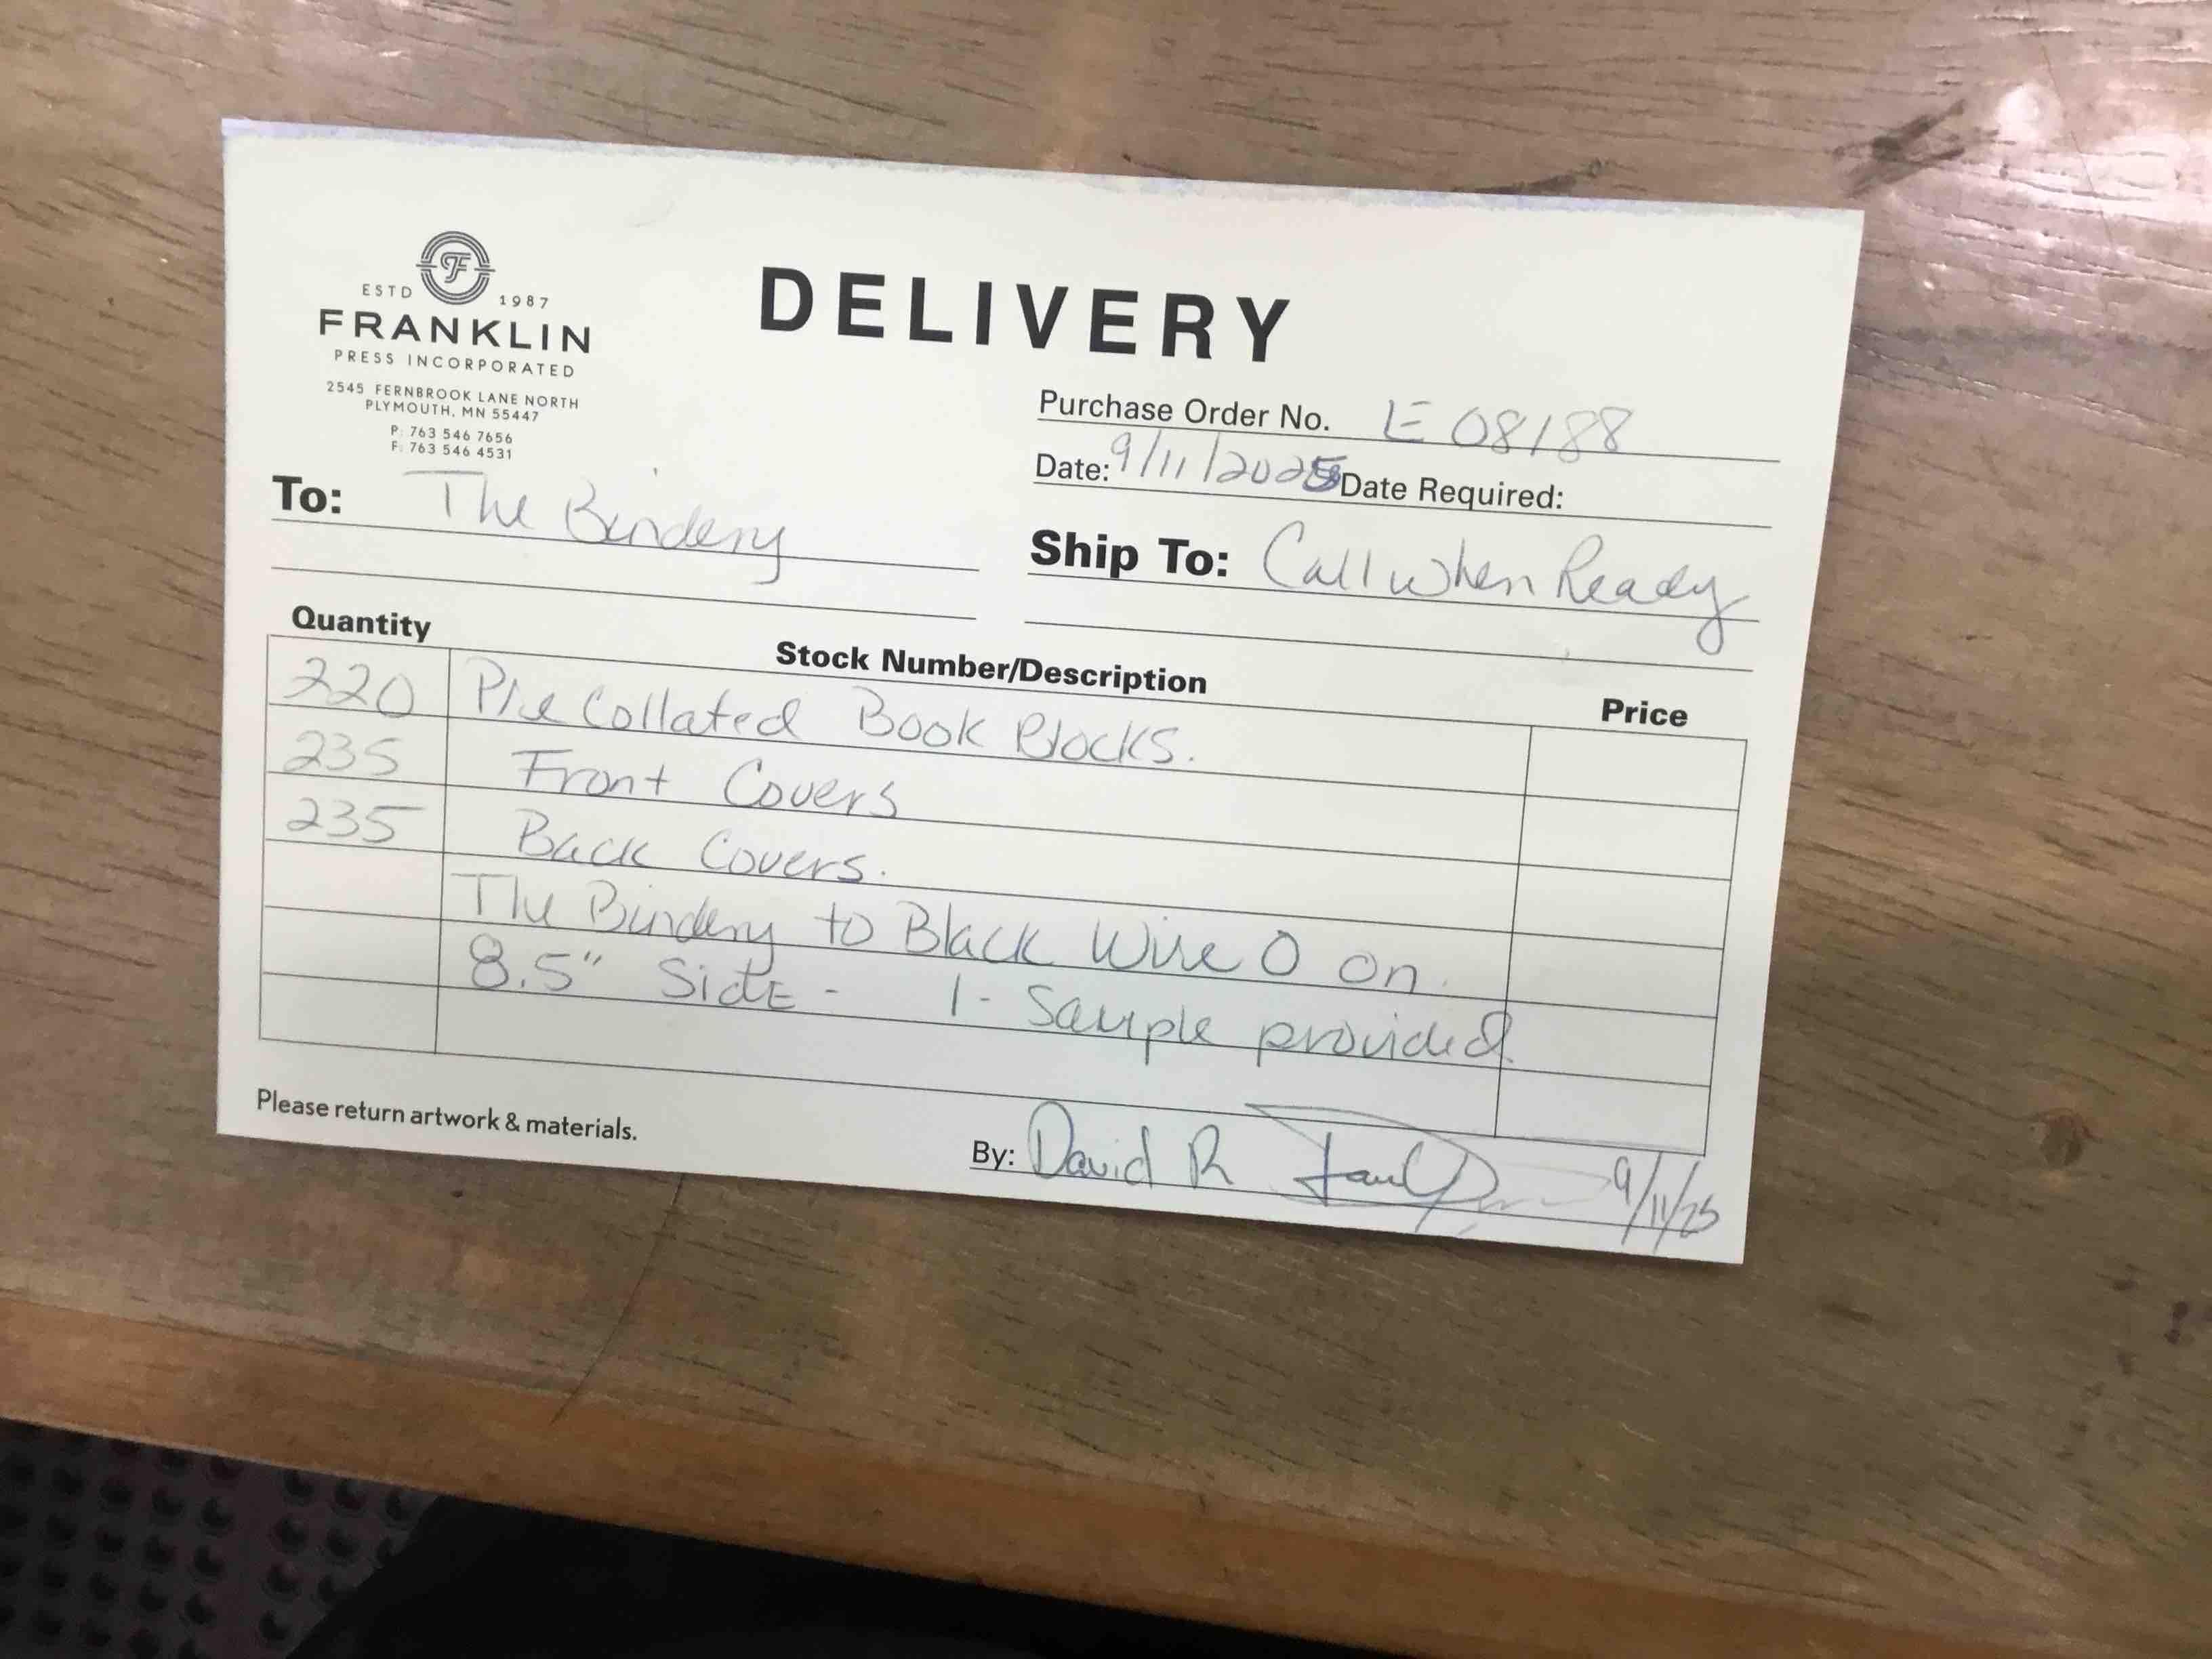 ESTD 1987
FRANKLIN
PRESS INCORPORATED
2545 FERNBROOK LANE NORTH
PLYMOUTH, MN 55447
P: 763 546 7656
F: 763 546 4531
DELIVERY
Purchase Order No. E 08188
Date: 9/11/2025 Date Required:
To: The Bindery
Ship To: Call when Ready
Quantity Stock Number/Description Price
220 Pre Collated Book Blocks.
235 Front Covers
235 Back Covers.
The Bindery to Black Wire O on
8.5" Side - 1 - Sample provided
Please return artwork & materials.
By: David R 9/11/25